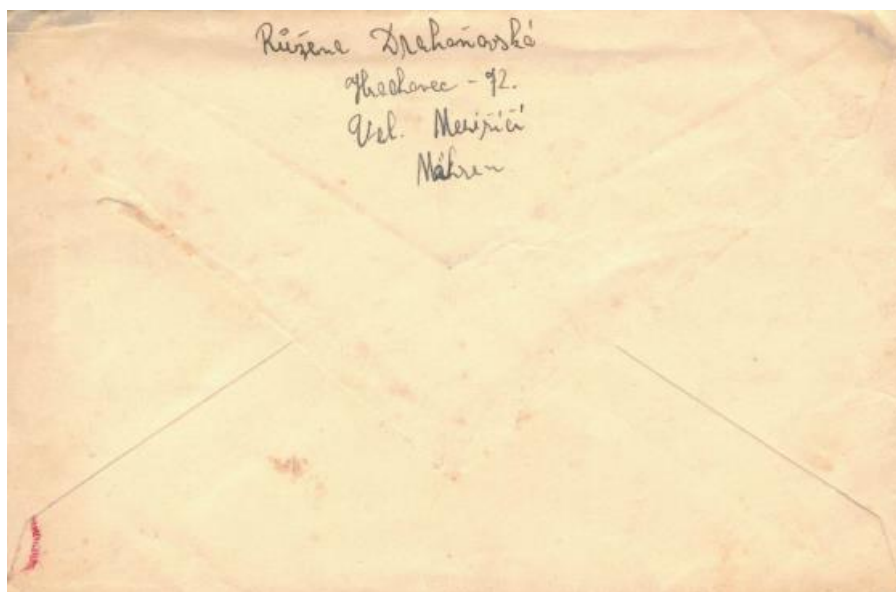 Růžena Drahoňovská
Hrachovec - 72.
Val. Meziříčí
Mähren